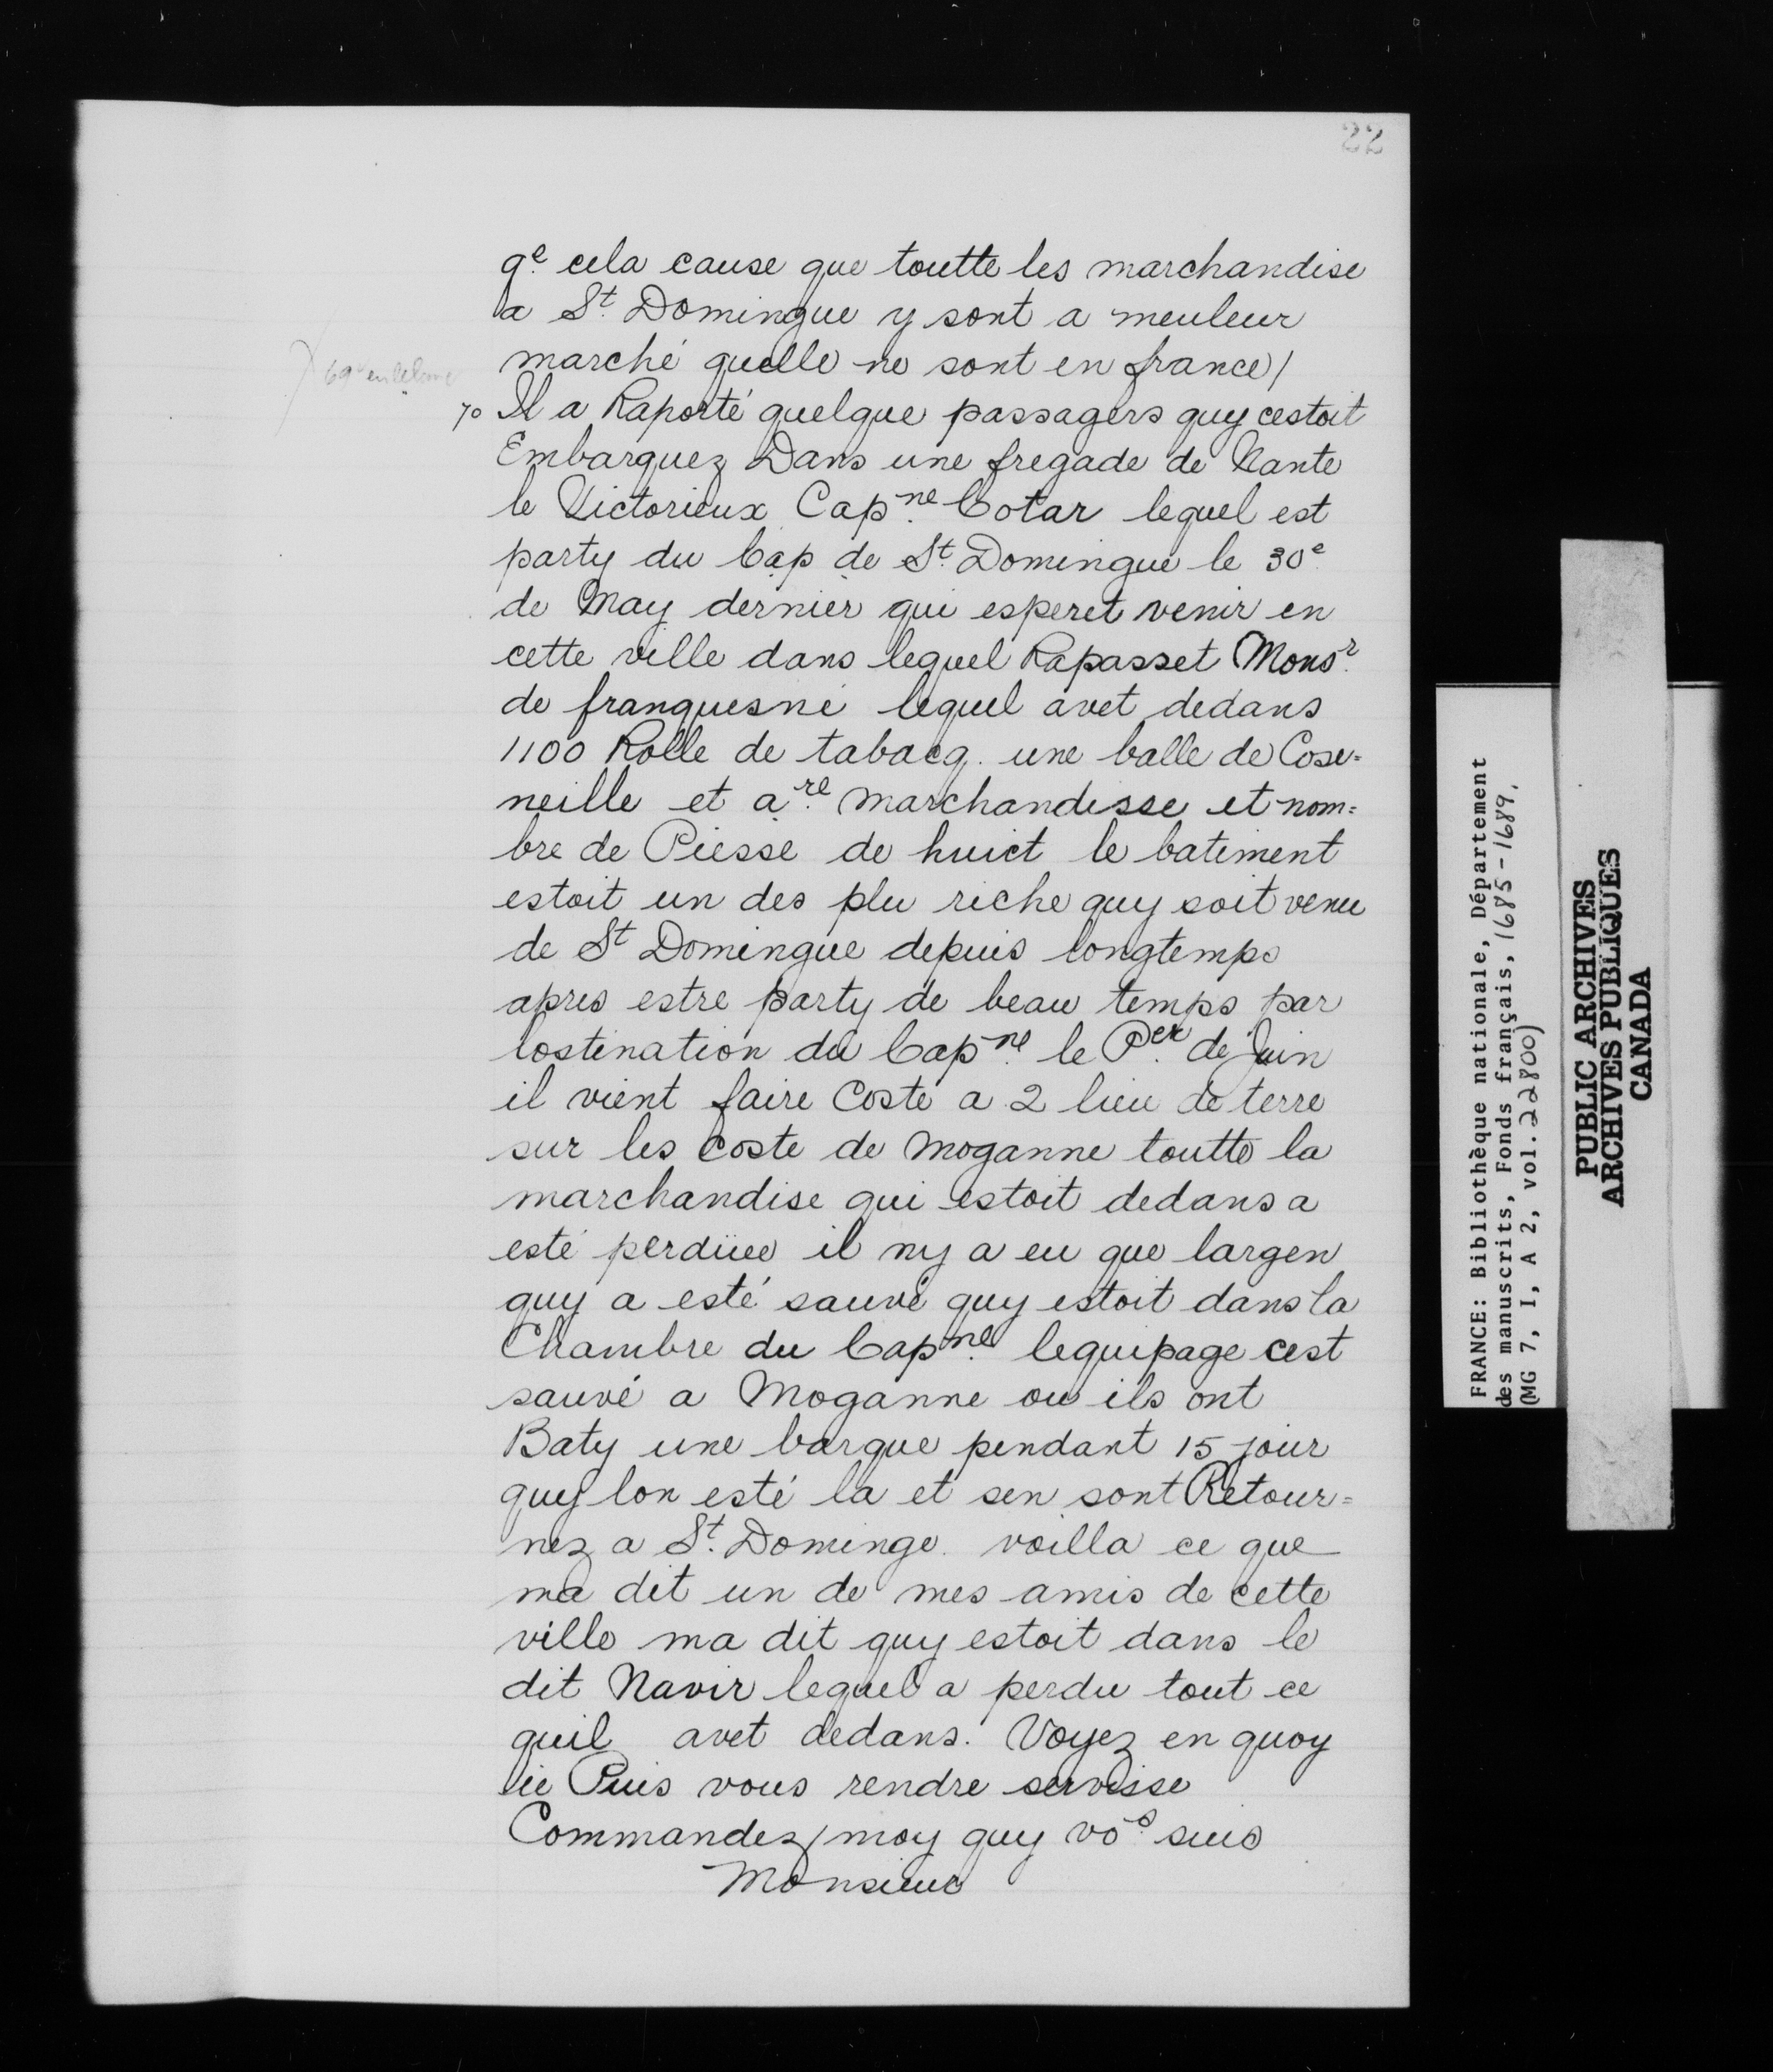 22
qe. cela cause que toutte les marchandise
a St. Domingue y sont a meuleur
marché quelle ne sont en france/
70 Il a Raporté quelque passagers quy cestoit
Embarquez Dans une fregade de Nante
le Victorieux Capne. Cotar lequel est
party du Cap de St. Domingue le 30e
de May dernier qui esperet venir en
cette ville dans lequel Rapasset Monsr.
de franquesne lequel avet dedans
1100 Rolle de tabacq. une balle de Cose=
neille et are. marchandisse et nom=
bre de Piesse de huict le batiment
estoit un des plu riche quy soit venu
de St Domingue depuis longtemps
apres estre party de beau temps par
lostination du Capne. le Per. de Juin
il vient faire Coste a 2 lieu de terre
sur les Coste de Moganne toutte la
marchandise qui estoit dedans a
esté perdüee il ny a eu que largen
quy a esté sauvé quy estoit dans la
Chambre du Capne. lequipage cest
sauvé a Moganne ou ils ont
Baty une barque pendant 15 jour
quy lon esté la et sen sont Retour=
nez a St. Dominge. voilla ce que
ma dit un de mes amis de cette
ville ma dit quy estoit dans le
dit Navir lequel a perdu tout ce
quil avet dedans. Voyez en quoy
ie Puis vous rendre servisse
Commandez/moy quy vos. suis
Monsieur
FRANCE: Bibliothèque nationale, Département
des manuscrits, Fonds français, 1685-1689.
(MG 7, I, A 2, vol. 22800)
PUBLIC ARCHIVES
ARCHIVES PUBLIQUES
CANADA